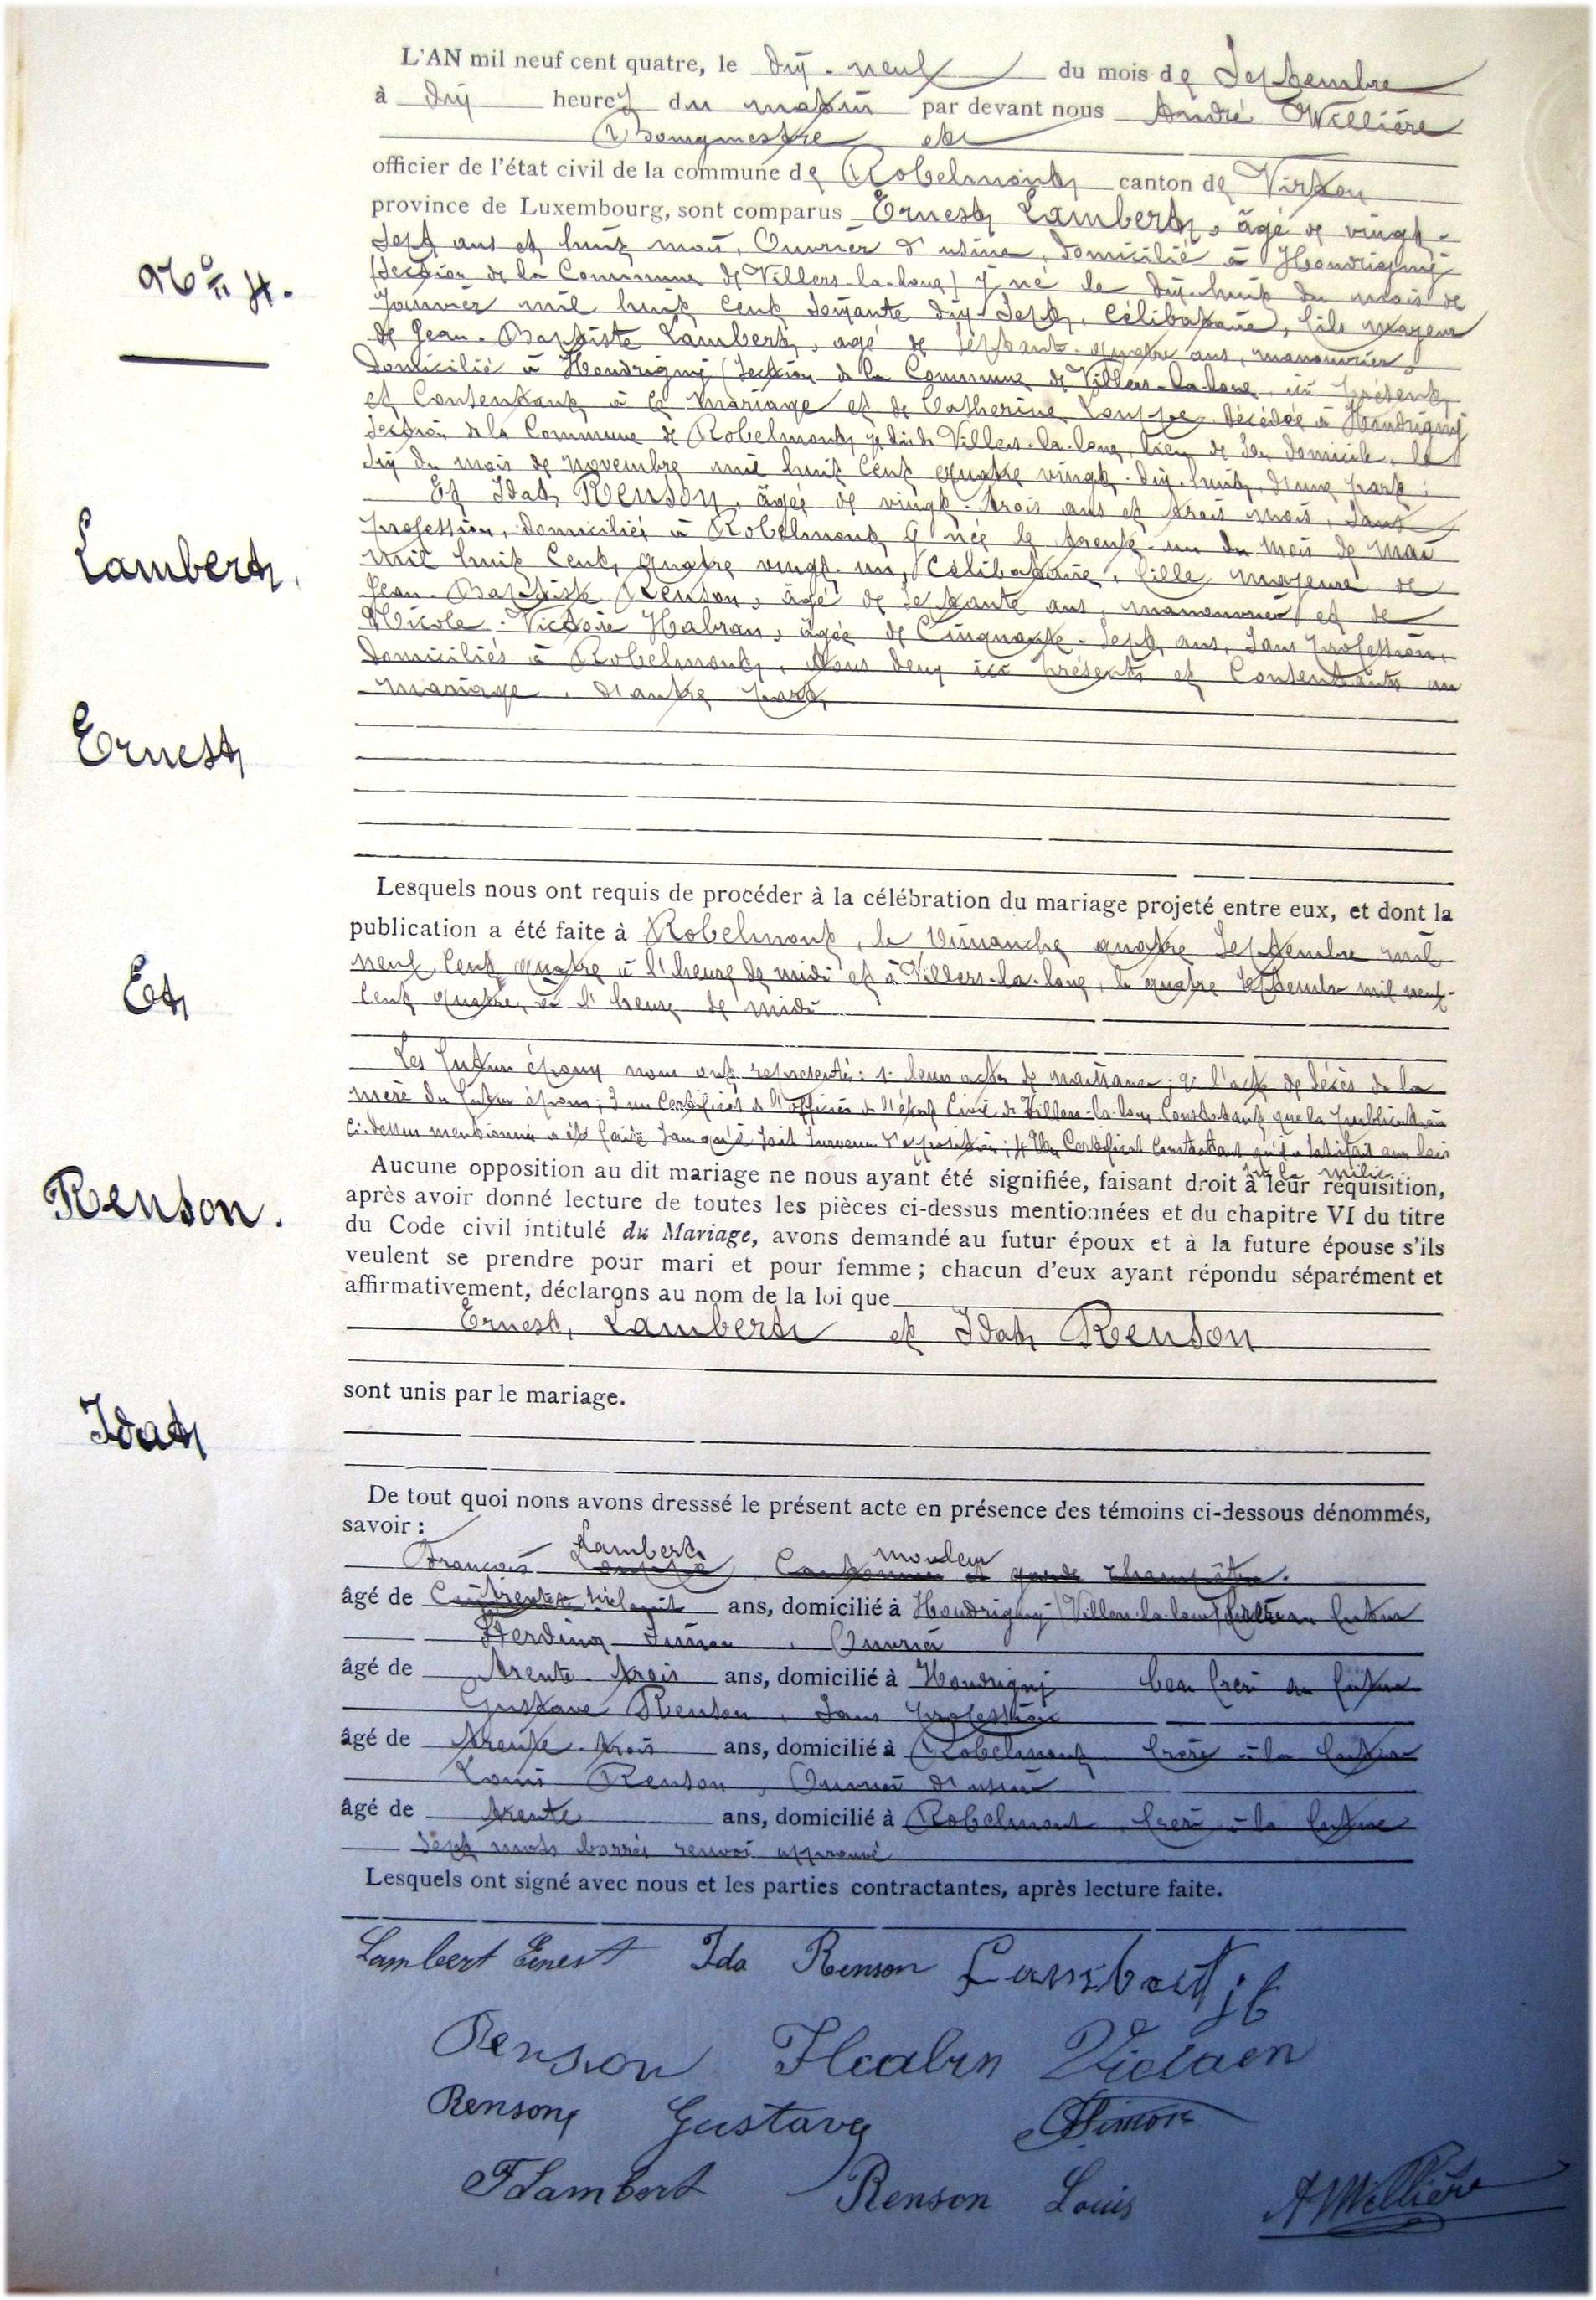 L'AN mil neuf cent quatre, le dix-neuf du mois de Septembre
à dix heures du matin par devant nous André Willière
Bourgmestre
officier de l'état civil de la commune de Robelmont, canton de Virton
province de Luxembourg, sont comparus Ernest Lambert, âgé de vingt-
sept ans et huit mois, Ouvrier d'usine, domicilié à Houdrigny
(section de la Commune de Villers-la-loue) y né le dix-huit du mois de
Janvier mil huit cent soixante dix-sept, célibataire, fils majeur
de Jean-Baptiste Lambert, agé de septante-quatre ans, manouvrier,
domicilié à Houdrigny (section de la Commune de Villers-la-loue, ici présent
et consentant à ce mariage et de Catherine Louppe, décédée à Houdrigny
section de la Commune de Robelmont, Villers-la-loue, lieu de son domicile, le
dix du mois de novembre mil huit cent quatre vingt-dix-huit, d'une part;
Et Idat Renson, âgée de vingt-trois ans et trois mois, sans
profession, domiciliée à Robelmont, y née le trente-un du mois de mai
mil huit cent quatre vingt-un, célibataire, fille majeure de
Jean-Baptiste Renson, âgé de septante ans, manouvrier et de
Nicole-Victoire Habran, âgée de Cinquante-sept ans, sans profession,
domiciliés à Robelmont, tous deux ici présents et consentants au
mariage, d'autre part,
N° 4.
Lambert,
Ernest
Et
Renson.
Idat
Lesquels nous ont requis de procéder à la célébration du mariage projeté entre eux, et dont la
publication a été faite à Robelmont, le Dimanche quatre Septembre mil
neuf cent quatre à l'heure de midi et à Villers-la-loue, le quatre septembre mil neuf-
cent quatre, à l'heure de midi
Les futurs époux nous ont représenté: 1. leurs actes de naissance; 2. l'acte de décès de la
mère du futur époux; 3 un certificat de l'officier de l'état civil de Villers-la-loue constatant que la publication
ci-dessus mentionnée a été faite sans qu'il soit survenu d'opposition; 4 Un Certificat constatant qu'il a satisfait aux lois
sur la milice.
Aucune opposition au dit mariage ne nous ayant été signifiée, faisant droit à leur réquisition,
après avoir donné lecture de toutes les pièces ci-dessus mentionnées et du chapitre VI du titre
du Code civil intitulé du Mariage, avons demandé au futur époux et à la future épouse s'ils
veulent se prendre pour mari et pour femme; chacun d'eux ayant répondu séparément et
affirmativement, déclarons au nom de la loi que
Ernest, Lambert et Idat Renson
sont unis par le mariage.
De tout quoi nons avons dresssé le présent acte en présence des témoins ci-dessous dénommés,
savoir:
Lambert mouleur
François Louppe, Cantonnier et garde champêtre.
âgé de trente ans, domicilié à Houdrigny (Villers-la-loue) futur
Simon, Ouvrier
âgé de trente-trois ans, domicilié à Houdrigny beau frère au futur
Gustave Renson, sans profession
âgé de trente-trois ans, domicilié à Robelmont, frère à la future
Louis Renson, Ouvrier d'usine
âgé de trente ans, domicilié à Robelmont, frère à la future
sept mots barrés renvoi approuvé
Lesquels ont signé avec nous et les parties contractantes, après lecture faite.
Lambert Ernest Ida Renson Lambert jb
Renson Habrn
Renson Gustave Simon
F Lambert Renson Louis AWillière